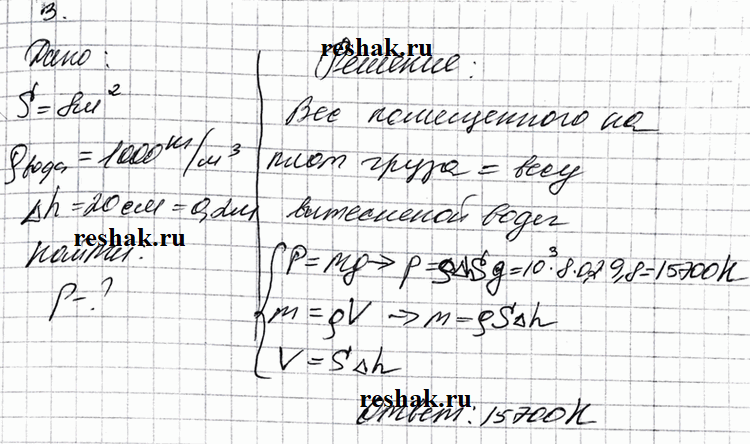 3.
reshak.ru
Дано:
S = 8м²
ρвода = 1000 кг/м³
Δh = 20 см = 0,2м
reshak.ru
Найти:
P - ?
Решение:
Вес помещенного на
плот груза = весу
вытесненой воды
P = mg → P = ρΔhSg = 10³·8·0,2·9,8 = 15700Н
m = ρV → m = ρSΔh
V = SΔh
reshak.ru
Ответ: 15700Н